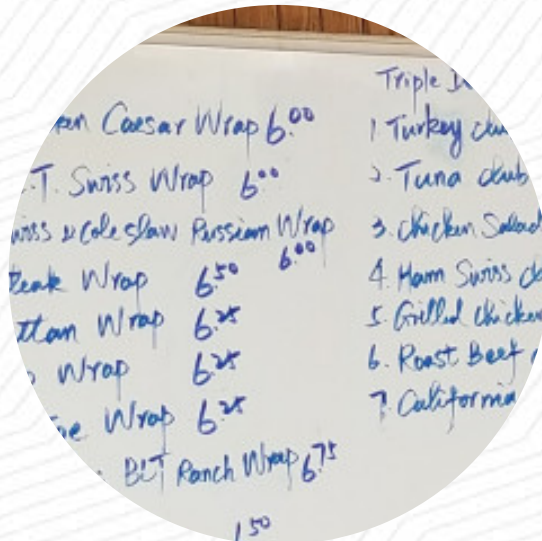 Caesar Wrap 6.00
.T. Swiss Wrap 6.00
& Cole slaw Russian Wrap
6.00
Wrap 6.50
Wrap 6.25
Wrap 6.25
Wrap 6.25
BLT Ranch Wrap 6.75
1.50
Triple
1. Turkey
2. Tuna club
3. Chicken Salad
4. Ham Swiss
5. Grilled Chicken
6. Roast Beef
7. California